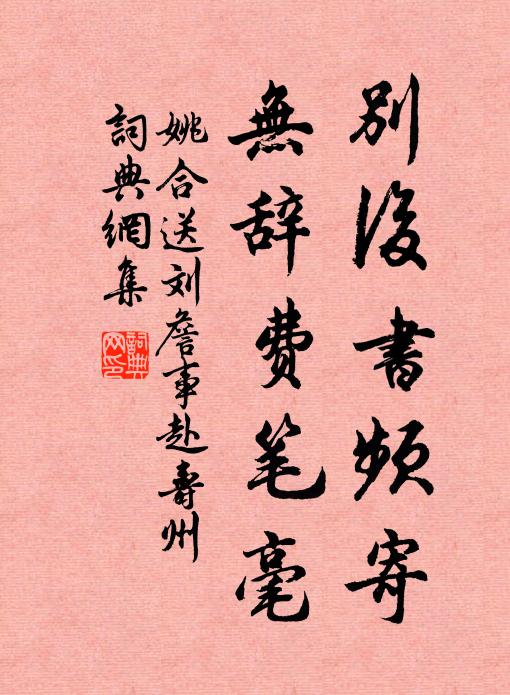 別後書頻寄
無辞费笔毫
姚合送刘詹事赴壽州
詞典網集
詞典網印